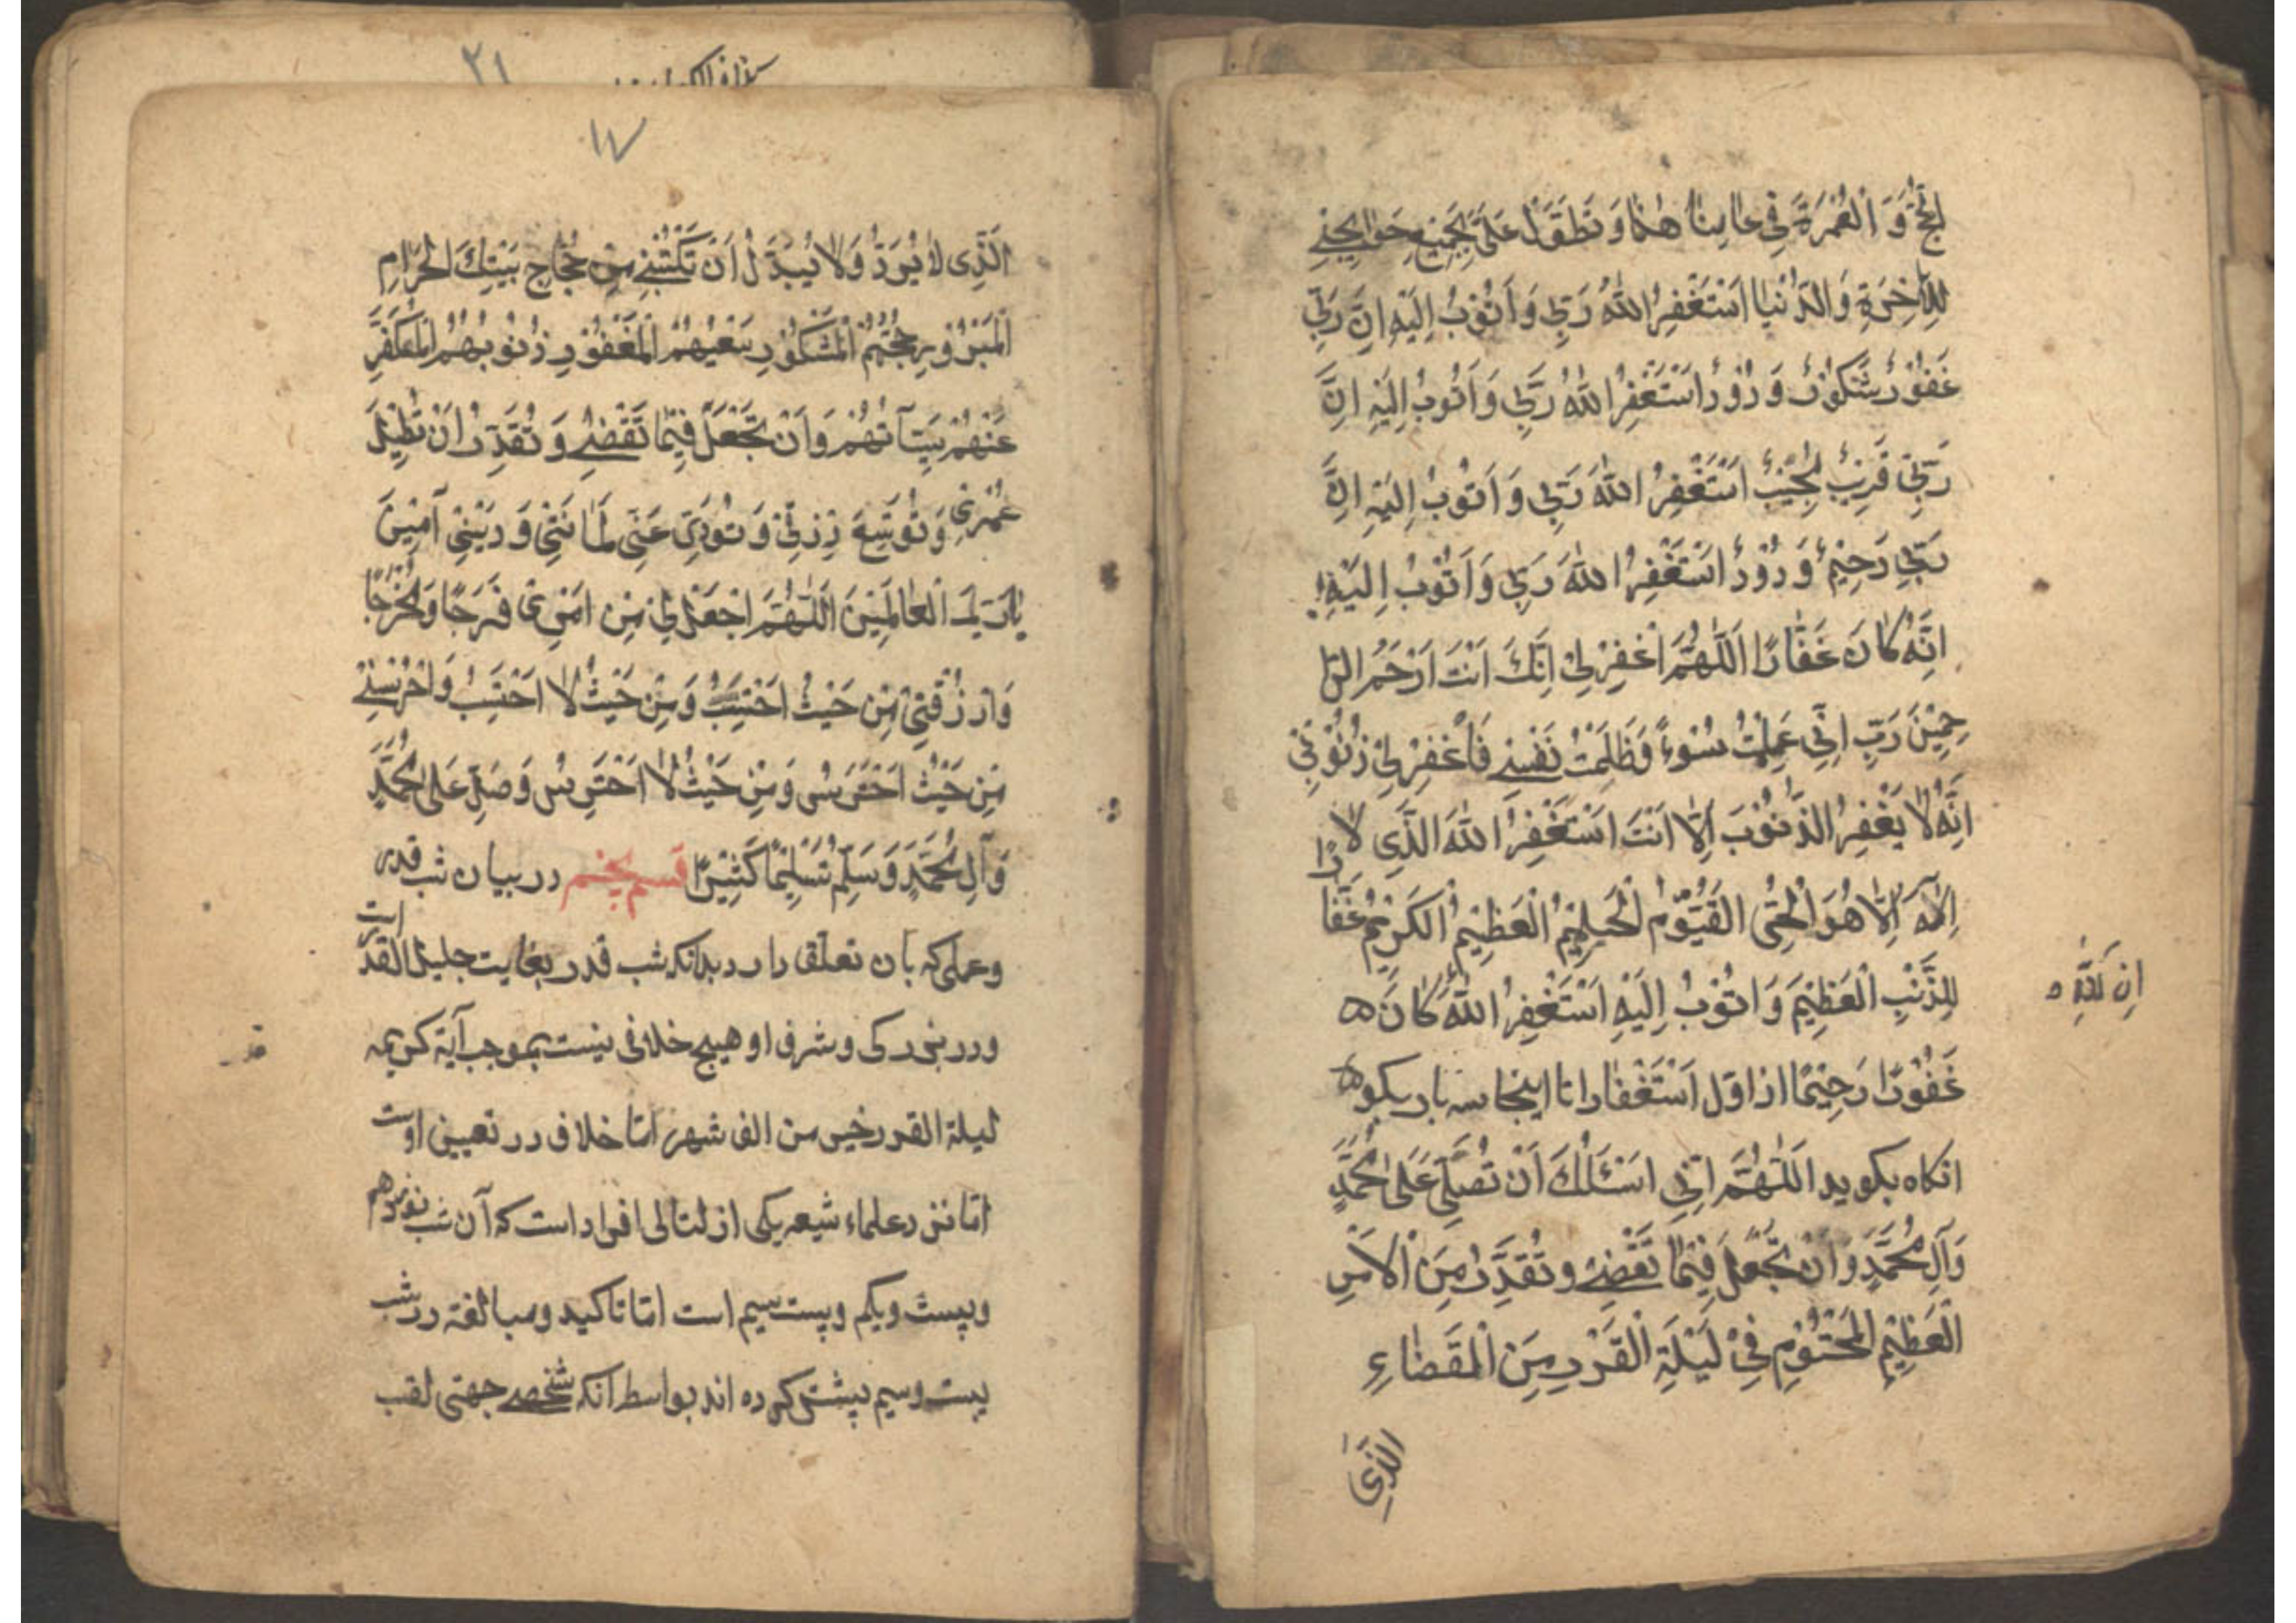 لِحَجِّ وَ الْعُمْرَةَ فِي عَامِنَا هٰذَا وَ تَطَوَّلْ عَلَيَّ بِجَمِيعِ حَوَائِجِي
لِلْآخِرَةِ وَالدُّنْيَا اَسْتَغْفِرُ اللّٰهَ رَبِّي وَ اَتُوْبُ اِلَيْهِ اِنَّ رَبِّي
غَفُوْرٌ شَكُوْرٌ وَدُوْدٌ اَسْتَغْفِرُ اللّٰهَ رَبِّي وَ اَتُوْبُ اِلَيْهِ اِنَّ
رَبِّيْ قَرِيْبٌ مُجِيْبٌ اَسْتَغْفِرُ اللّٰهَ رَبِّي وَ اَتُوبُ اِلَيْهِ اِنَّ
رَبِّي رَحِيْمٌ وَدُوْدٌ اَسْتَغْفِرُ اللّٰهَ رَبِّي وَ اَتُوْبُ اِلَيْهِ
اِنَّهُ كَانَ غَفَّارًا اَللّٰهُمَّ اغْفِرْ لِيْ اِنَّكَ اَنْتَ اَرْحَمُ الرّا
حِمِيْنَ رَبِّ اِنِّي عَمِلْتُ سُوْءً وَظَلَمْتُ نَفْسِي فَاغْفِرْ لِيْ ذُنُوْبِيْ
اِنَّهُ لَا يَغْفِرُ الذُّنُوْبَ اِلَّا اَنْتَ اَسْتَغْفِرُ اللّٰهَ الَّذِي لَا
اِلٰهَ اِلَّا هُوَ الْحَيُّ الْقَيُّوْمُ الْحَلِيْمُ الْعَظِيْمُ الْكَرِيْمُ غَفَّا رًا
لِلذَّنْبِ الْعَظِيْمَ وَ اَتُوْبُ اِلَيْهِ اَسْتَغْفِرُ اللّٰهَ كَانَ
اِنَّ اللّٰهَ
غَفُوْرًا رَحِيْمًا از اوّل اَسْتَغْفَار تا اينجا سه بار بكو
انكاه بكويد اَللّٰهُمَّ اِنِّي اَسْئَلُكَ اَنْ تُصَلِّيَ عَلٰى مُحَمَّدٍ
وَآلِ مُحَمَّدٍ وَ اَنْ تَجْعَلَ فِيْمَا تَقْضِيْ وَ تُقَدِّرُ مِنَ الْاَمْرِ
الْعَظِيْمِ الْمَحْتُوْمِ فِيْ لَيْلَةِ الْقَدْرِ مِنَ الْقَضَاءِ
الَّذِي
١٧
الَّذِي لَا يُرَدُّ وَلَا يُبَدَّلُ اَنْ تَكْتُبَنِي مِنْ حُجَّاجِ بَيْتِكَ الْحَرَامِ
الْمَبْرُوْرِ حَجُّهُمْ الْمَشْكُوْرِ سَعْيُهُمْ الْمَغْفُوْرِ ذُنُوْبُهُمْ الْمُكَفَّرِ
عَنْهُمْ سَيِّئَاتُهُمْ وَ اَنْ تَجْعَلَ فِيْمَا تَقْضِيْ وَ تُقَدِّرُ اَنْ تُطِيْلَ
عُمْرِيْ وَ تُوَسِّعَ رِزْقِيْ وَ تُؤَدِّيَ عَنِّي اَمَانَتِيْ وَ دَيْنِيْ آمِيْنَ
يَا رَبَّ الْعَالَمِيْنَ اَللّٰهُمَّ اجْعَلْ لِيْ مِنْ اَمْرِيْ فَرَجًا وَ مَخْرَجًا
وَارْزُقْنِيْ مِنْ حَيْثُ اَحْتَسِبُ وَ مِنْ حَيْثُ لَا اَحْتَسِبُ وَ احْرُسْنِيْ
مِنْ حَيْثُ اَحْتَرِسُ وَ مِنْ حَيْثُ لَا اَحْتَرِسُ وَ صَلِّ عَلٰى مُحَمَّدٍ
وَ آلِ مُحَمَّدٍ وَ سَلِّمْ تَسْلِيْمًا كَثِيْرًا قسم پنجم در بيان شب قدر
وعملى كه بآن تعلق دارد بدانكه شب قدر بغايت جليل القدر است
ودر بزركى وشرف او هيچ خلافى نيست بموجب آية كريمه
ليلة القدر خير من الف شهر امّا خلاف در تعيين اوست
امّا نزد علماء شيعه يكى از لتالى افراد است كه آن شب نوزدهم
وبيست ويكم وبيست سيم است امّا تاكيد ومبالغة در شب
بيست وسيم بيشتر كرده اند بواسط انكه شخصى جهنى لقب